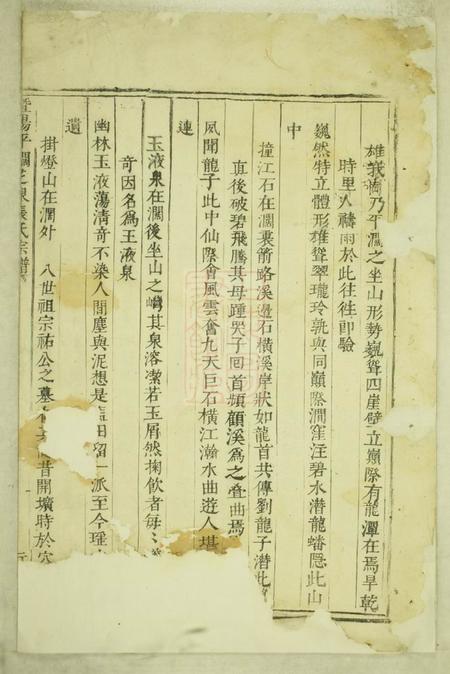 雄莪崗乃平澗之坐山形勢巍聳四崖壁立巔際有龍潭在焉旱乾
時里人禱雨於此往往即驗
巍然特立體形雄聳翠瓏玲孰與同巔際澗窪汪碧水潛龍蟠隱此山
中
撞江石在澗裏箭略溪邊石橫溪岸狀如龍首共傳劉龍子潛此
直後破碧飛騰其母踵哭子回首頻顧溪為之叠曲焉
夙聞龍子此中仙際會風雲奮九天巨石橫江瀚水曲遊人堪
連
玉液泉在澗後坐山之嶹其泉溶潔若玉屑然掬飲者每
奇因名為玉液泉
幽林玉液蕩清奇不染人間塵與泥想是藍田留一派至今
遺
掛燈山在澗外 八世祖宗祐公之墓昔開壙時於穴
暨陽平澗之東張氏宗譜